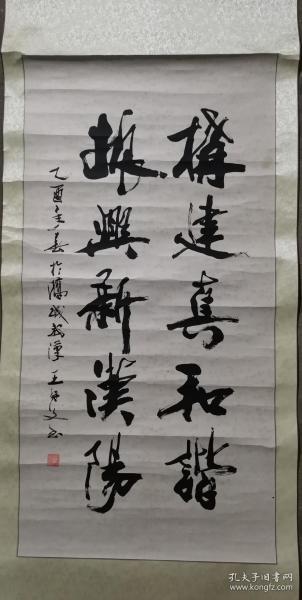 構建真和諧
振興新濮陽
乙酉年春於濮城龍潭王
孔夫子旧书网